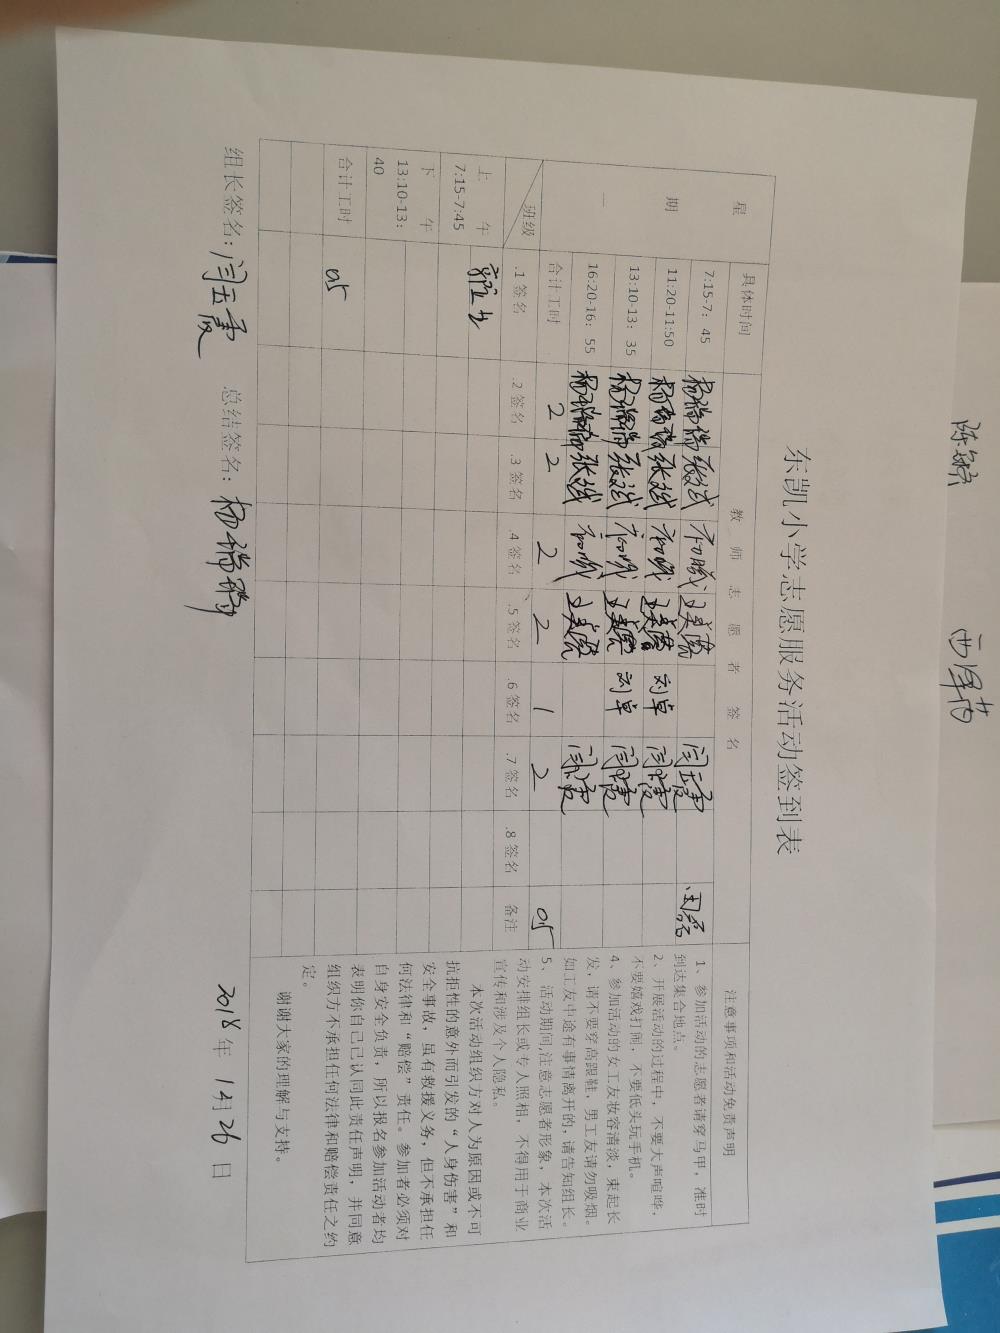 东凯小学志愿服务活动签到表
星期一
具体时间
教师志愿者签名
注意事项和活动免责声明
7:15-7:45 杨瑞瑞 张斌 王美霞 闫玉霞 周磊
11:20-11:50 杨瑞瑞 张斌 王美霞 刘卓 闫玉霞
13:10-13:35 杨瑞瑞 张斌 王美霞 刘卓 闫玉霞
16:20-16:55 杨瑞瑞 张斌 王美霞 闫玉霞
合计工时 2 2 2 2 1 2 0.5
班级 .1签名 .2签名 .3签名 .4签名 .5签名 .6签名 .7签名 .8签名 备注
上午
7:15-7:45
下午
13:10-13:
40
合计工时 0.5
1、参加活动的志愿者请穿马甲，准时
到达集合地点。
2、开展活动的过程中，不要大声喧哗，
不要嬉戏打闹，不要低头玩手机。
4、参加活动的女工友妆容清淡，束起长
发，请不要穿高跟鞋，男工友请勿吸烟。
如工友中途有事情离开的，请告知组长。
5、活动期间,注意志愿者形象，本次活
动安排组长或专人照相，不得用于商业
宣传和涉及个人隐私。
本次活动组织方对人为原因或不可
抗拒性的意外而引发的“人身伤害”和
安全事故，虽有救援义务，但不承担任
何法律和“赔偿”责任。参加者必须对
自身安全负责，所以报名参加活动者均
表明你自己已认同此责任声明，并同意
组织方不承担任何法律和赔偿责任之约
定。
谢谢大家的理解与支持。
组长签名：闫玉霞 总结签名：杨瑞瑞 2018年 1月26日